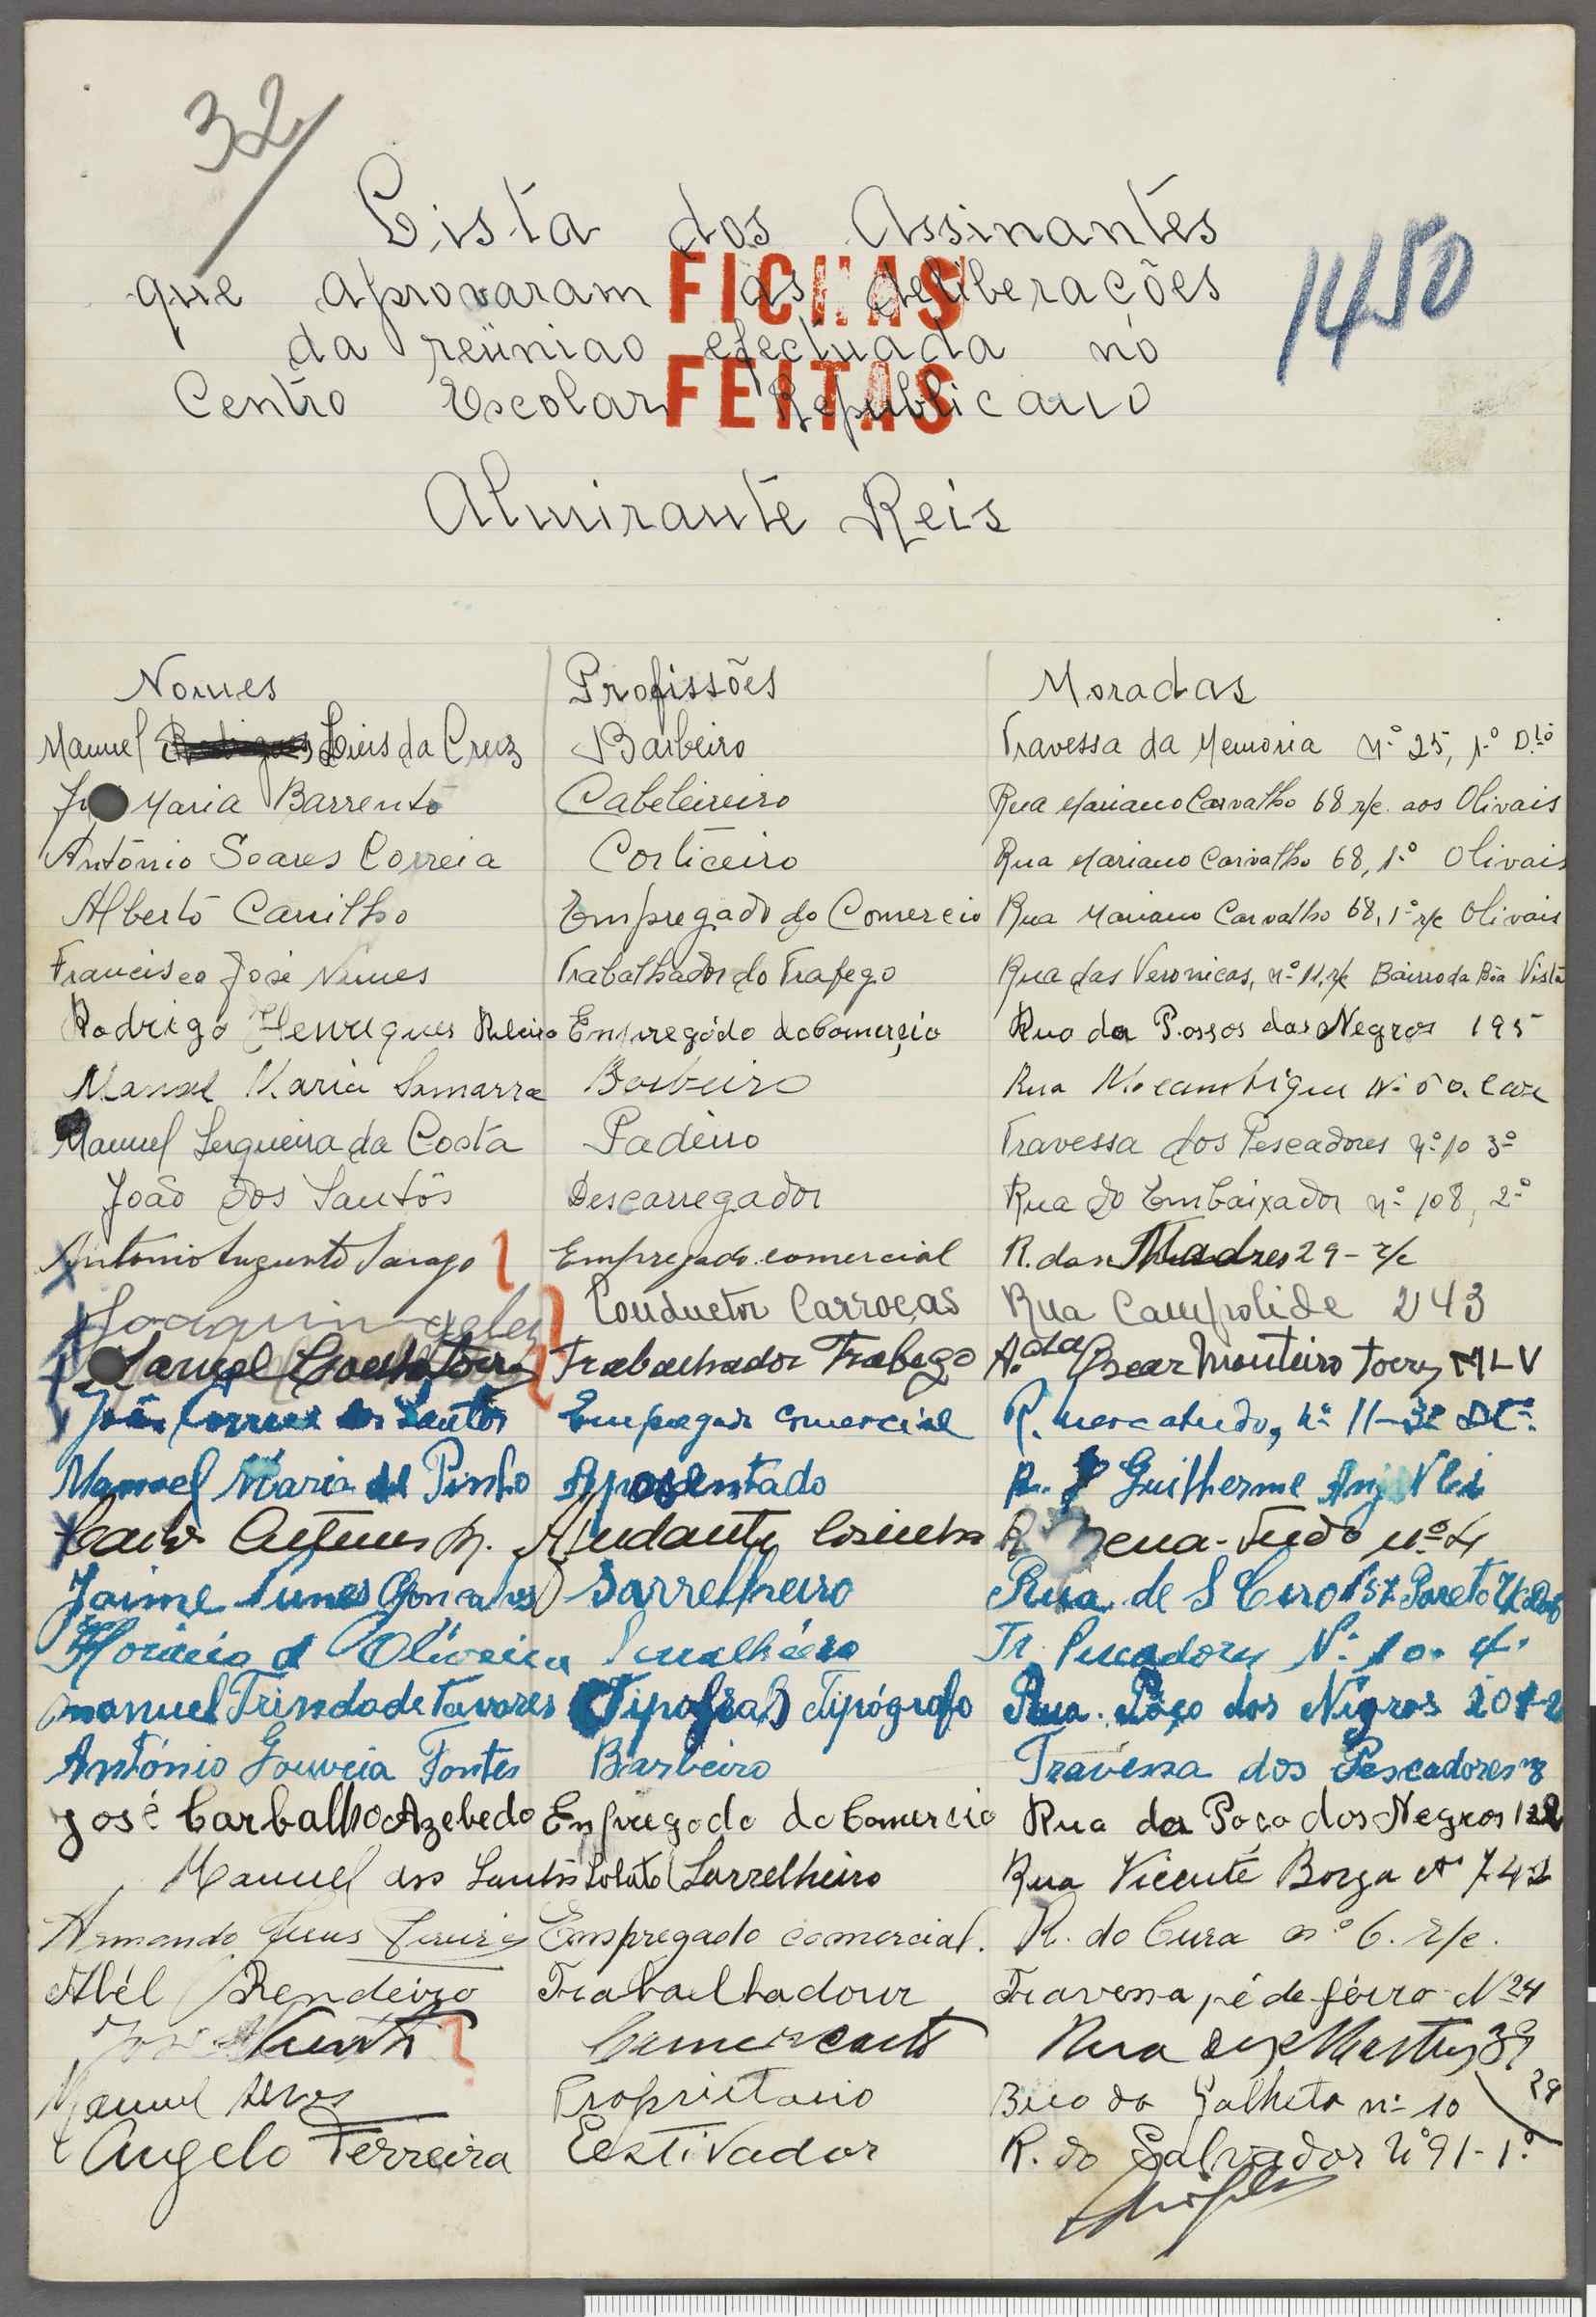 32
Lista dos Assinantes
1450
que aprovaram as deliberações
FICHAS
da reünião efectuada no
FEITAS
Centro Escolar Republicano
Almirante Reis
Nomes Profissões Moradas
Manuel Luis da Cruz Barbeiro Travessa da Memoria nº 25, 1º D.to
Maria Barrento Cabeleireiro Rua Mariano Carvalho 68 r/c. aos Olivais
António Soares Correia Corticeiro Rua Mariano Carvalho 68, 1º Olivais
Alberto Carrilho Empregado do Comercio Rua Mariano Carvalho 68, 1º r/c Olivais
Francisco José Nunes Trabalhador do Trafego Rua das Veronicas, nº 11, r/c Bairro da Bôa Vista
Rodrigo Henriques Ribeiro Empregado do Comerçio Rua da Possos das Negros 195
Manuel Maria Samarra Barbeiro Rua Mocambique Nº
Manuel Serqueira da Costa Padeiro Travessa dos Pescadores nº 10 3º
João dos Santos Descarregador Rua do Embaixador nº 108, 2º
Antonio Augusto Empregado comercial R. das Madres 29 - r/c
Joaquim Conductor Carroças Rua Campolide 243
Manuel Trabalhador Trafego Oscar Monteiro Torres MLV
João Correia dos Santos Empregado comercial R. nº 11-3º Dtº
Manuel Maria de Pinho Aposentado R. Guilherme Anjos
Ajudante Cosinha nº 4
Jaime Nunes Gonçalves Sarrelheiro Rua de S Ciro
Horácio d Oliveira Serralheiro Tr. Pescadores Nº 10. 4.
Manuel Trindade Tavares (Tipofra) Tipógrafo Rua Poço dos Nigros
António Gouveia Fontes Barbeiro Travessa dos Pescadores
José Carballo Azebedo Empregado do Comercio Rua da Poço dos Negros 122
Manuel dos Santos Lobato Sarrelheiro Rua Vicente Borga
Armando Empregado comercial. R. do Cura nº 6. r/c.
Abél Rendeiro Trabalhadour Travessa pé de férro Nº 24
José Comerciante Rua dos Mastros 39
Manuel Alves Proprietario Bêco da Galheta nº 10 29
Angelo Ferreira Eestivador R. do Salvador nº 91-1º